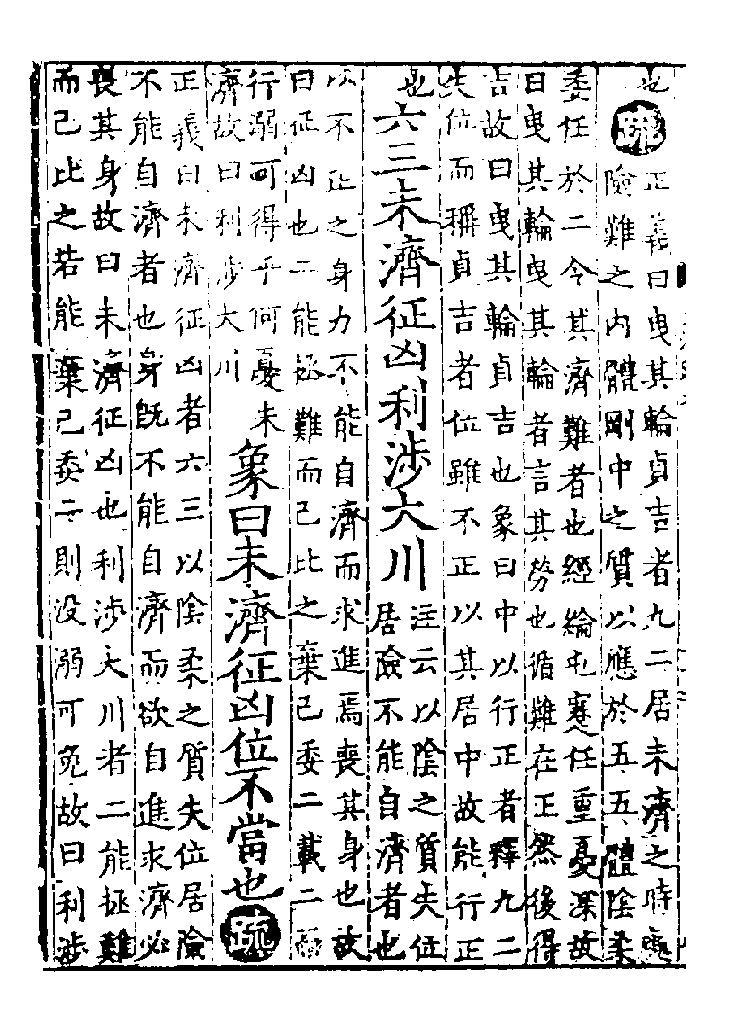 也疏正義曰曳其輪貞吉者九二居未濟之時處
險難之內體剛中之質以應於五五體陰柔
委任於二令其濟難者也經綸屯蹇任重憂深故
曰曳其輪曳其輪者言其勞也循難在正然後得
吉故曰曳其輪貞吉也象曰中以行正者釋九二
失位而稱貞吉者位雖不正以其居中故能行正
也六三未濟征凶利涉大川
注云以陰之質失位
居險不能自濟者也
以不正之身力不能自濟而求進焉喪其身也故
曰征凶也二能拯難而己比之棄己委二載二而
行溺可得乎何憂未
濟故曰利涉大川
象曰未濟征凶位不當也疏
正義曰未濟征凶者六三以陰柔之質失位居險
不能自濟者也身既不能自濟而欲自進求濟必
喪其身故曰未濟征凶也利涉大川者二能拯難
而己比之若能棄己委二則没溺可免故曰利涉